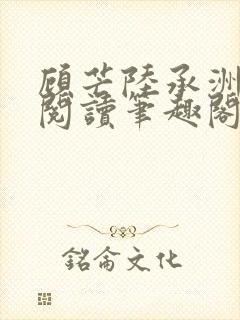 顾芒陸承洲
閱讀筆趣閣
銘侖文化